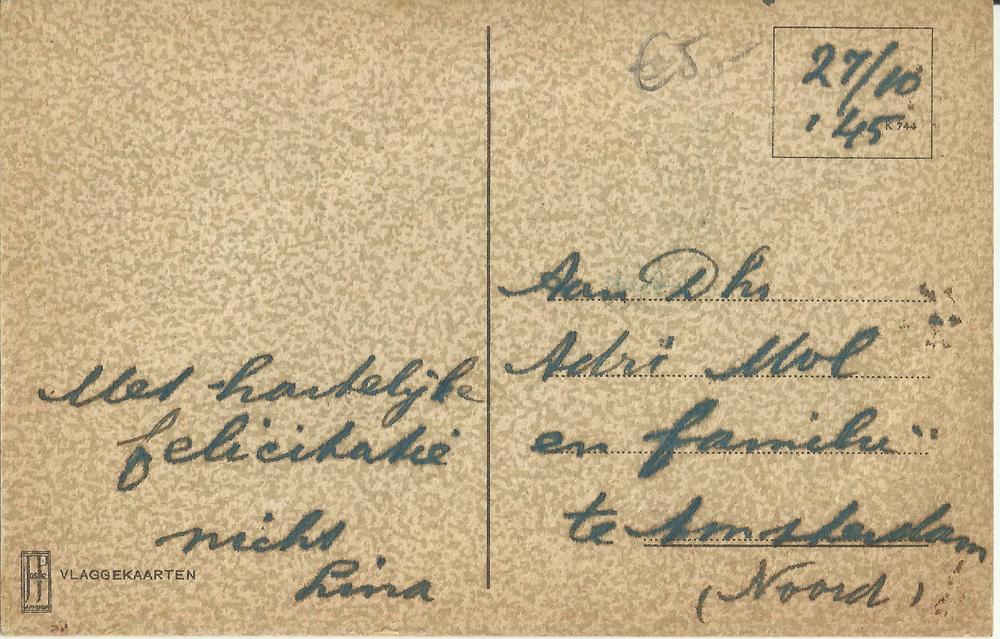 €5,-
27/10
'45
K 744
Met hartelijke
felicitatie
nicht
Lina
VLAGGEKAARTEN
Aan Dhr
Adri Mol
en familie
te Amsterdam
(Noord)